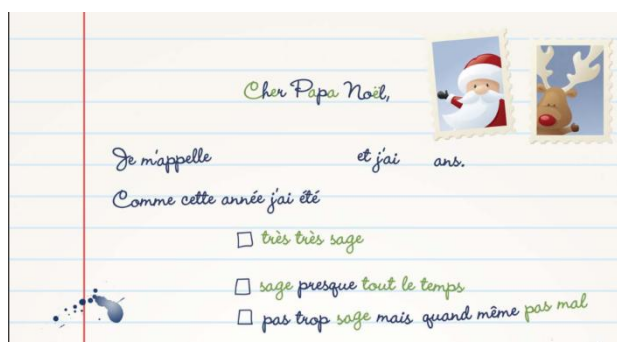 Cher Papa Noël,
Je m'appelle et j'ai ans.
Comme cette année j'ai été
très très sage
sage presque tout le temps
pas trop sage mais quand même pas mal